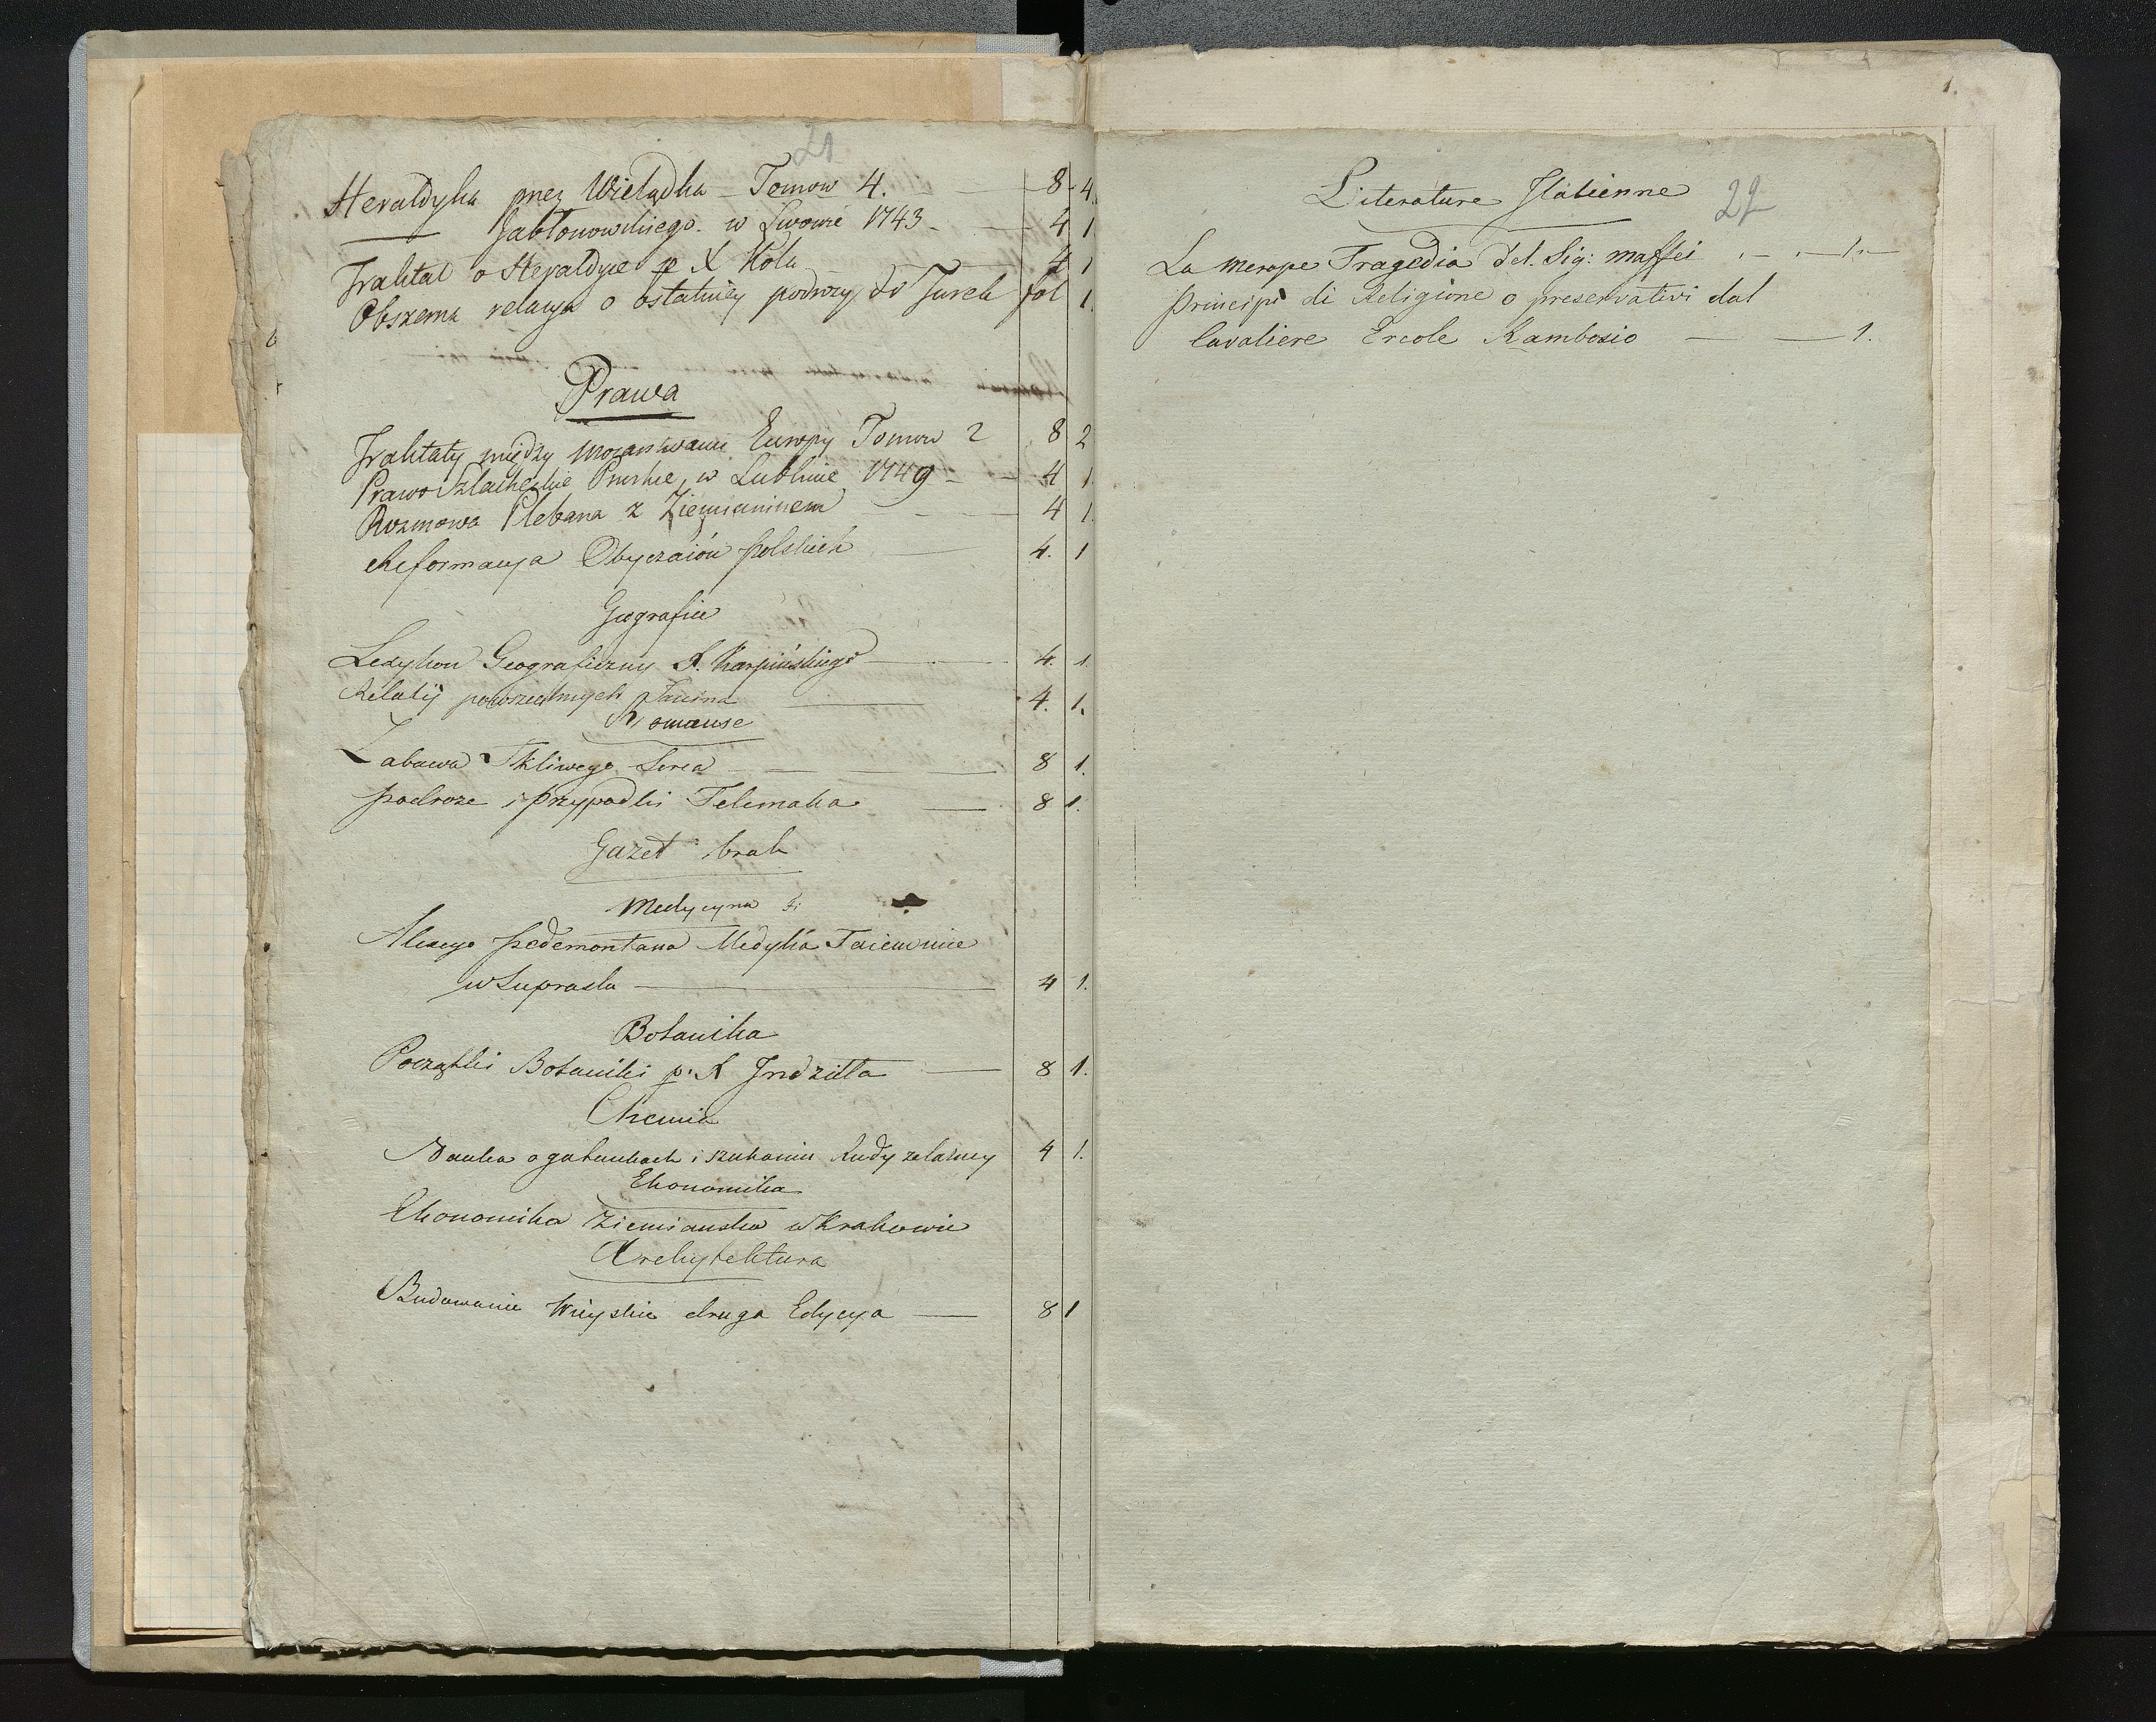 21
Heraldyka przez Wielądka – Tomow 4. 8. 4.
Jabłonowskiego. w Lwowie 1743. 4 1
Traktat o Heraldyce p X Kola 4 1
Obszerna relacya o ostatniey podrozy do Turek fol 1.
Prawa
Traktaty między mocarstwami Europy Tomow 2 8 2
Prawo Szlacheckie Pruskie, w Lublinie 1749 4 1
Rozmowa Plebana z Ziemianinem 4 1.
Reformacya Obyczaiów polskich 4. 1
Geografia
Lexykon Geograficzny X. Karpińskiego 4. 1.
Relatij powszechnych 4. 1.
Romanse
Zabawa Tkliwego Serca 8 1.
podroze i przypadki Telemaka 8 1.
Gazet brak
Medycyna
Alexego pedemontana Medyka Taiemnice
w Supraslu 4 1.
Botanika
Początki Botaniki p. X Jndziłła 8 1.
Chemia
Nauka o gatunkach i szukaniu Rudy zelazney 4 1.
Ekonomika
Ekonomika Ziemianska w Krakowie
Architektura
Budowanie Wieyskie druga Edycya 8 1
1.
Literature Jtalienne
22
La merope Tragedia del. Sig: maffei 1.
principi di Religione o preservativi dal
Cavaliere Ercole 1.